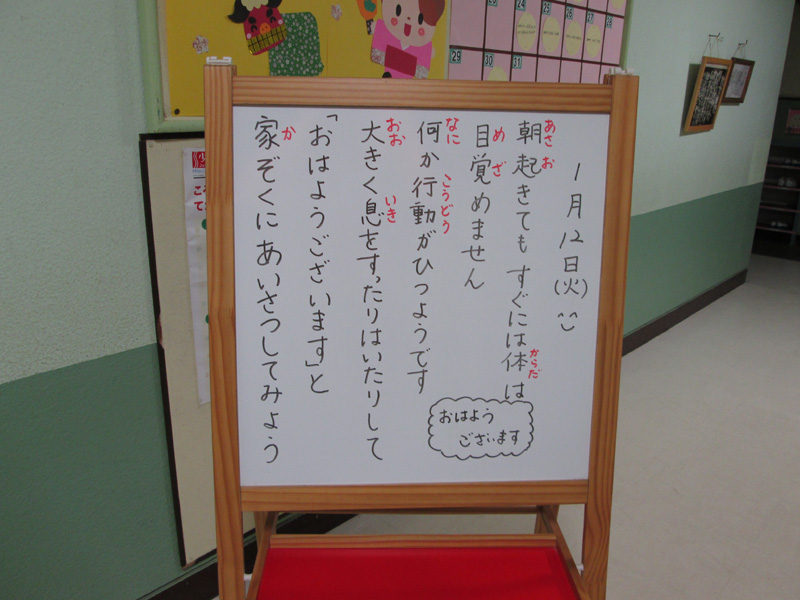 1月12日(火)
朝起きてもすぐには体は
目覚めません
何か行動がひつようです
大きく息をすったりはいたりして
「おはようございます」と
家ぞくにあいさつしてみよう
あさ お
からだ
め ざ
なに
こうどう
おお
いき
か
おはよう
ございます
24
25
26
27
28
29
30
31